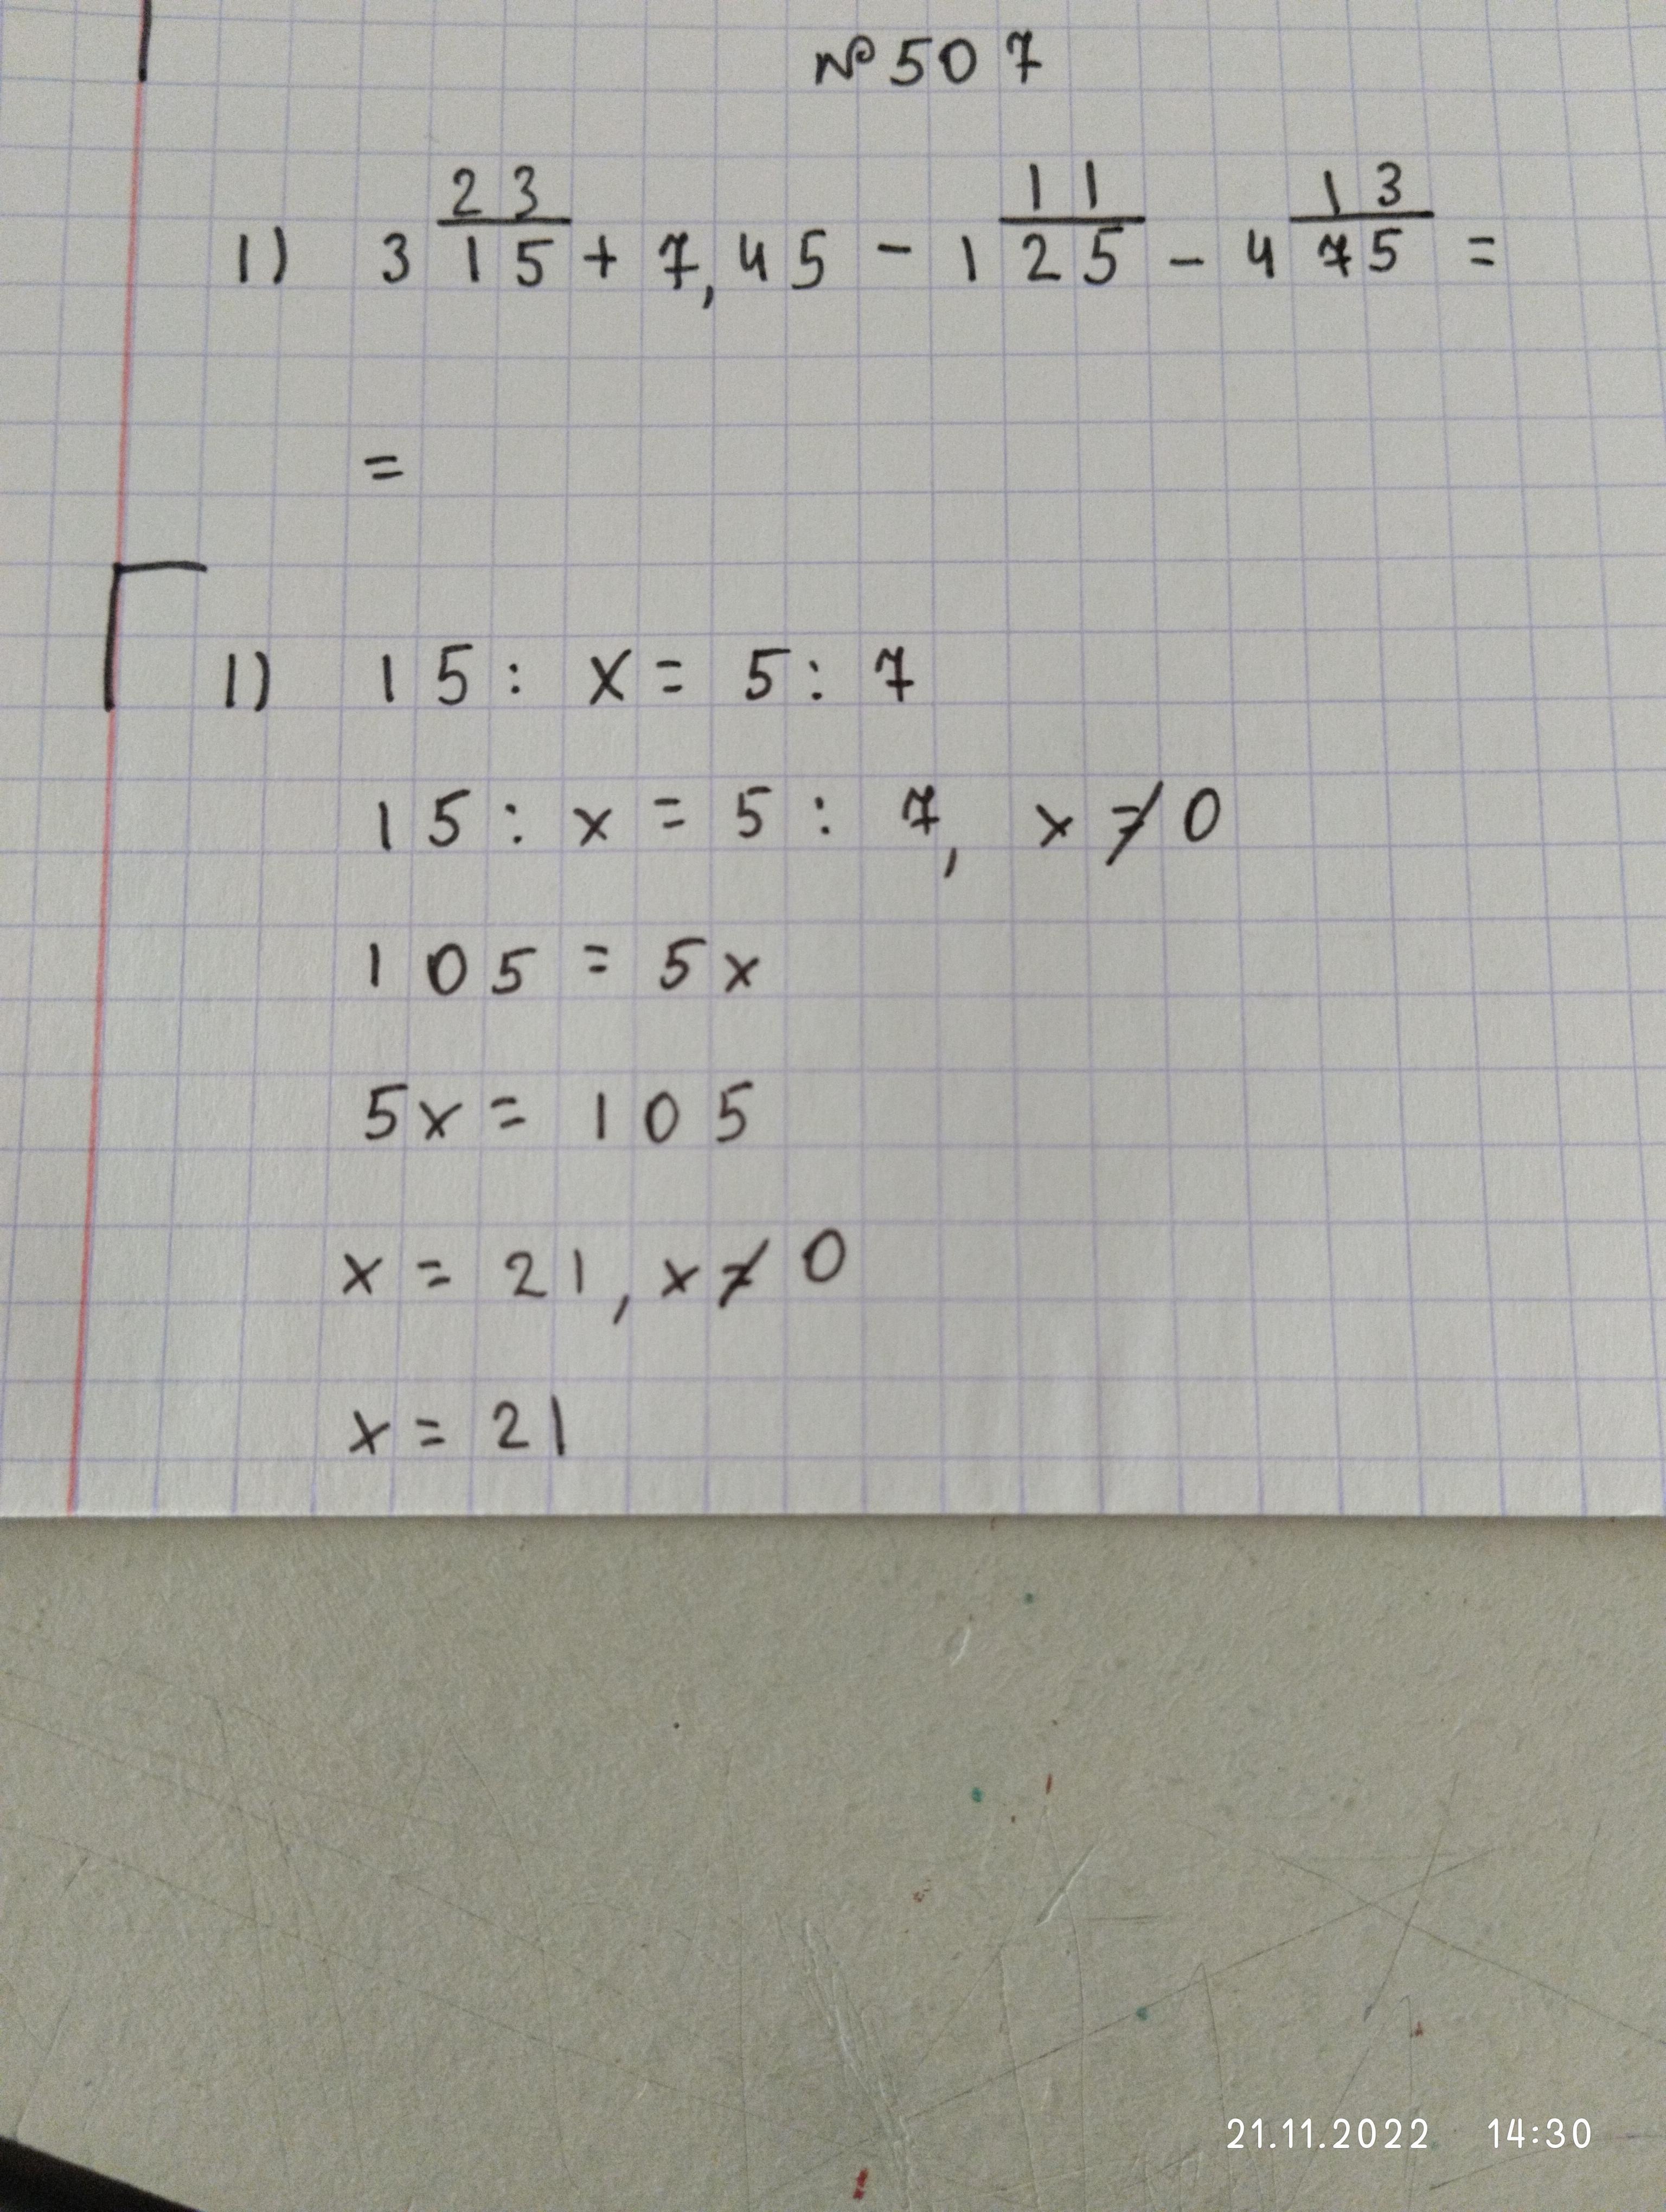 №507
1) 3 23/15 + 7,45 - 1 11/25 - 4 13/75 =
=
1) 15 : x = 5 : 7
15 : x = 5 : 7, x ≠ 0
105 = 5x
5x = 105
x = 21, x ≠ 0
x = 21
21.11.2022 14:30